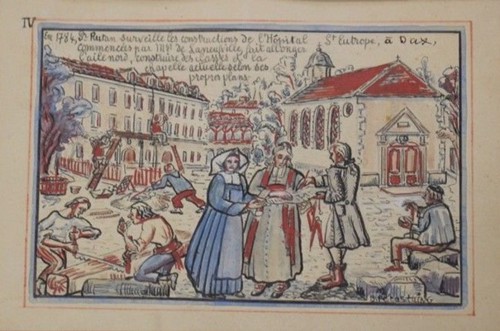 IV
En 1784, Sr Rutan surveille les constructions de l'Hôpital St Eutrope, à Dax,
commencées par Mgr de Laneufville, fait allonger
l'aile nord, construire des classes et la
chapelle actuelle selon des
propres plans.